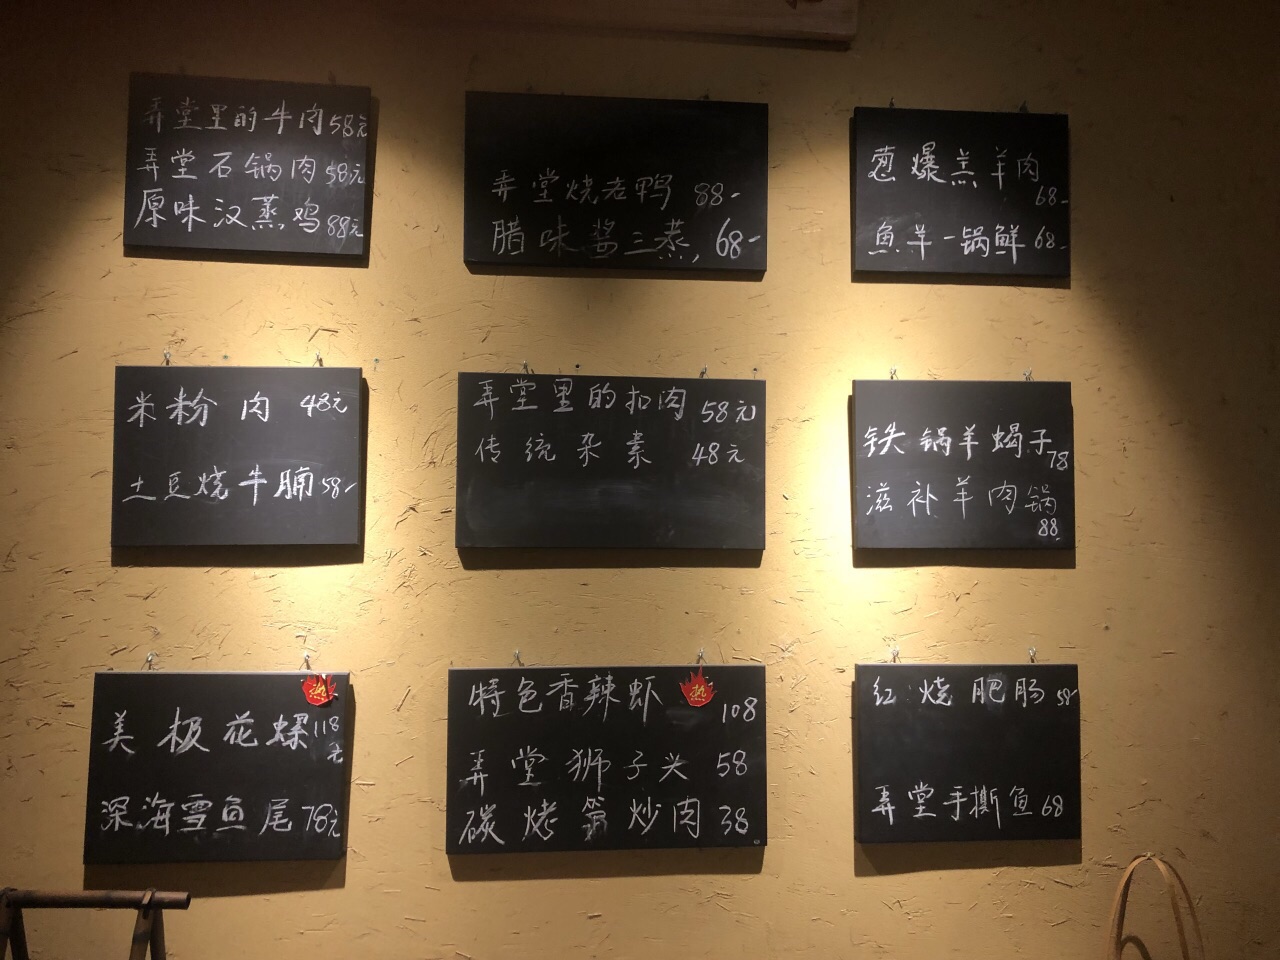 弄堂里的牛肉58元
弄堂石锅肉58元
原味汉蒸鸡88元
弄堂烧老鸭 88-
腊味酱三蒸, 68-
葱爆羔羊肉
68-
鱼羊一锅鲜 68-
米粉肉 48元
土豆烧牛腩58-
弄堂里的扣肉 58元
传统杂素 48元
铁锅羊蝎子78
滋补羊肉锅
88
热
美极花螺118
元
深海雪鱼尾78元
特色香辣虾 热 108
弄堂狮子头 58
碳烤笋炒肉 38
红烧肥肠 58-
弄堂手撕鱼 68